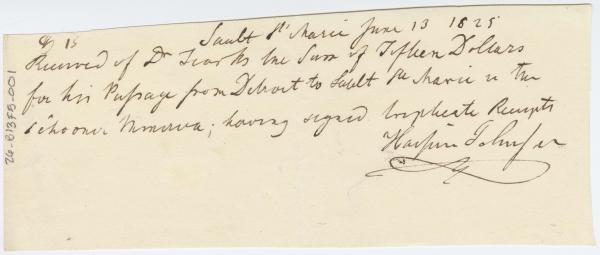 Sault St Marie June 13 1825
$ 15
Received of Dr the Sum of Fifteen Dollars
for his Passage from Detroit to Sault Ste Marie in the
Schooner Minerva; having signed triplicate Receipts
26-61375-001